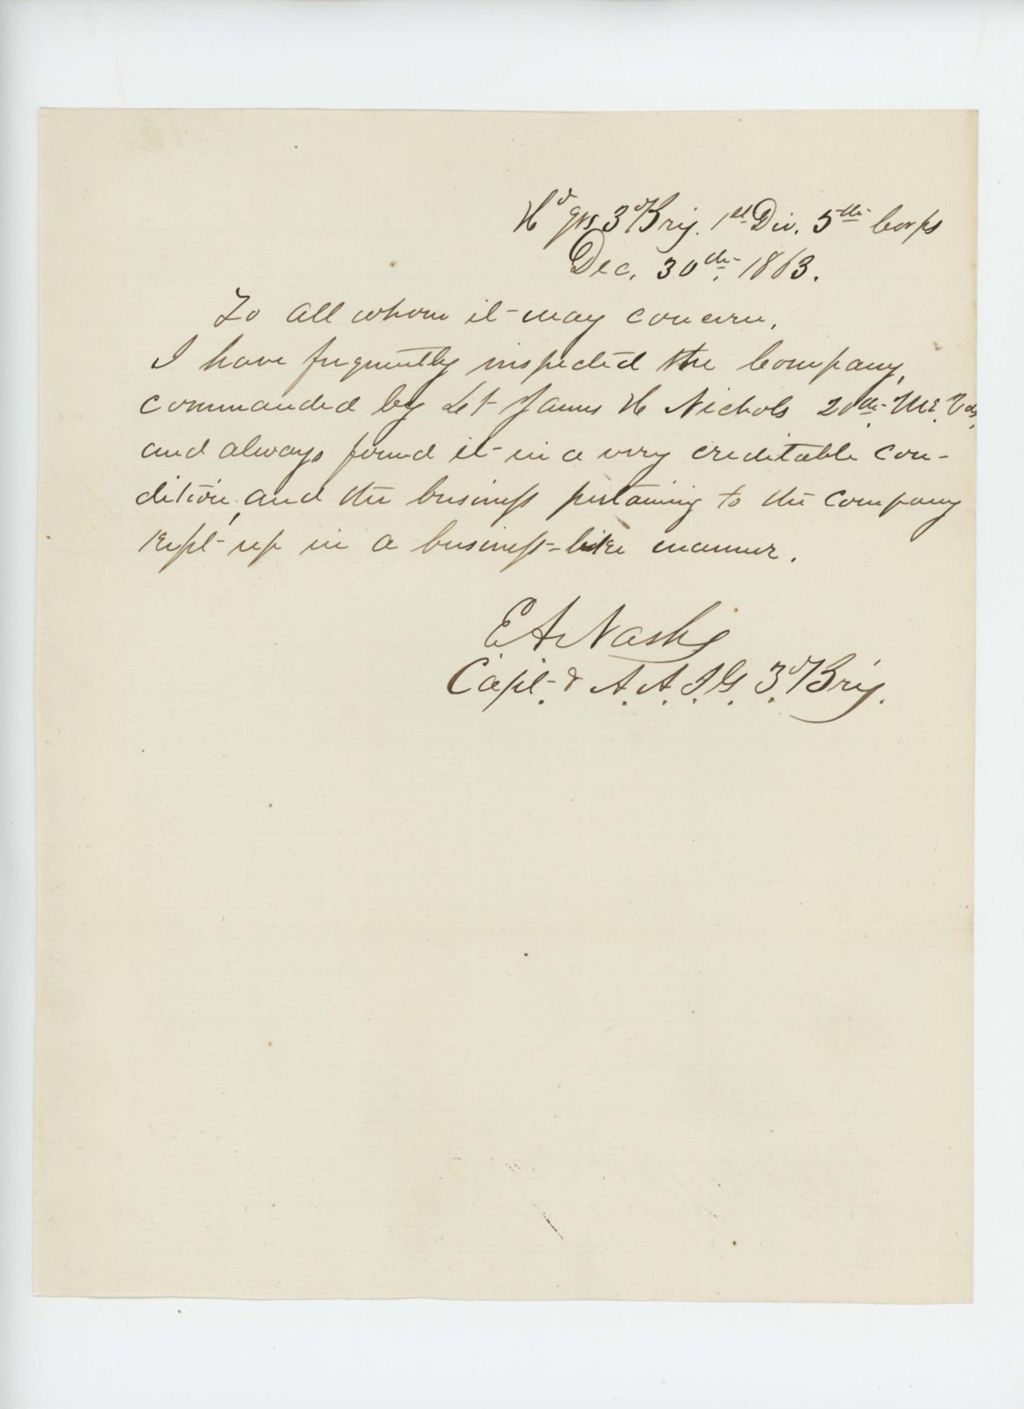 Hd qrs 3d Brig. 1st Div. 5th Corps
Dec. 30th 1863.
To all whom it may concern,
I have frequently inspected the Company,
commanded by Lt James H Nichols 20th Me. Vols,
and always found it in a very creditable con-
dition, and the business pertaining to the Company
kept up in a business-like manner.
E. A. Nash
Capt. & A. A. I. G. 3d Brig.